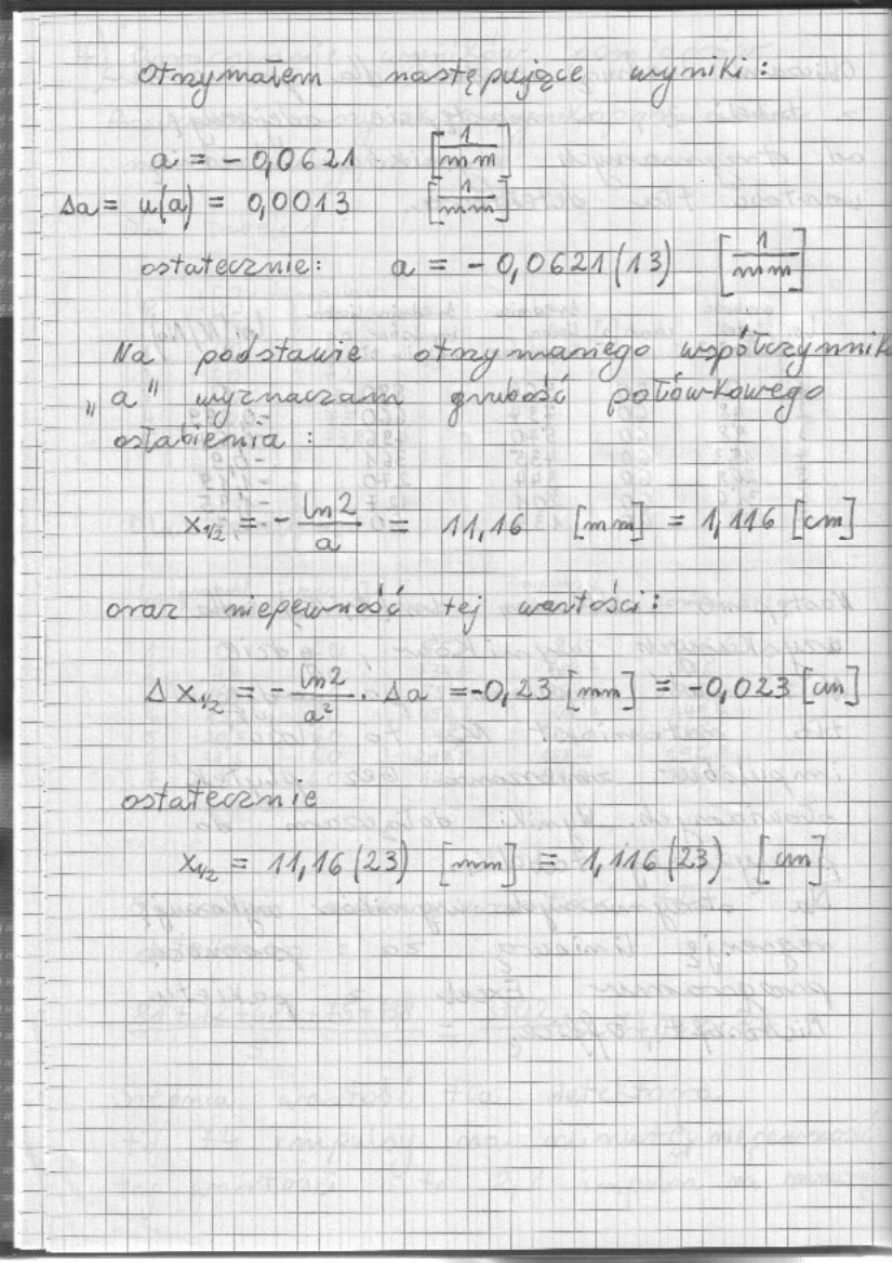 Otrzymałem następujące wyniki:
a = - 0,0621 [1/mm]
Δa = u(a) = 0,0013 [1/mm]
ostatecznie: a = - 0,0621(13) [1/mm]
Na podstawie otrzymanego współczynnik
„a" wyznaczam grubość połówkowego
osłabienia :
x1/2 = - ln2/a = 11,16 [mm] = 1,116 [cm]
oraz niepewność tej wartości:
Δx1/2 = - ln2/a² · Δa = -0,23 [mm] = -0,023 [cm]
ostatecznie
x1/2 = 11,16(23) [mm] = 1,116(23) [cm]